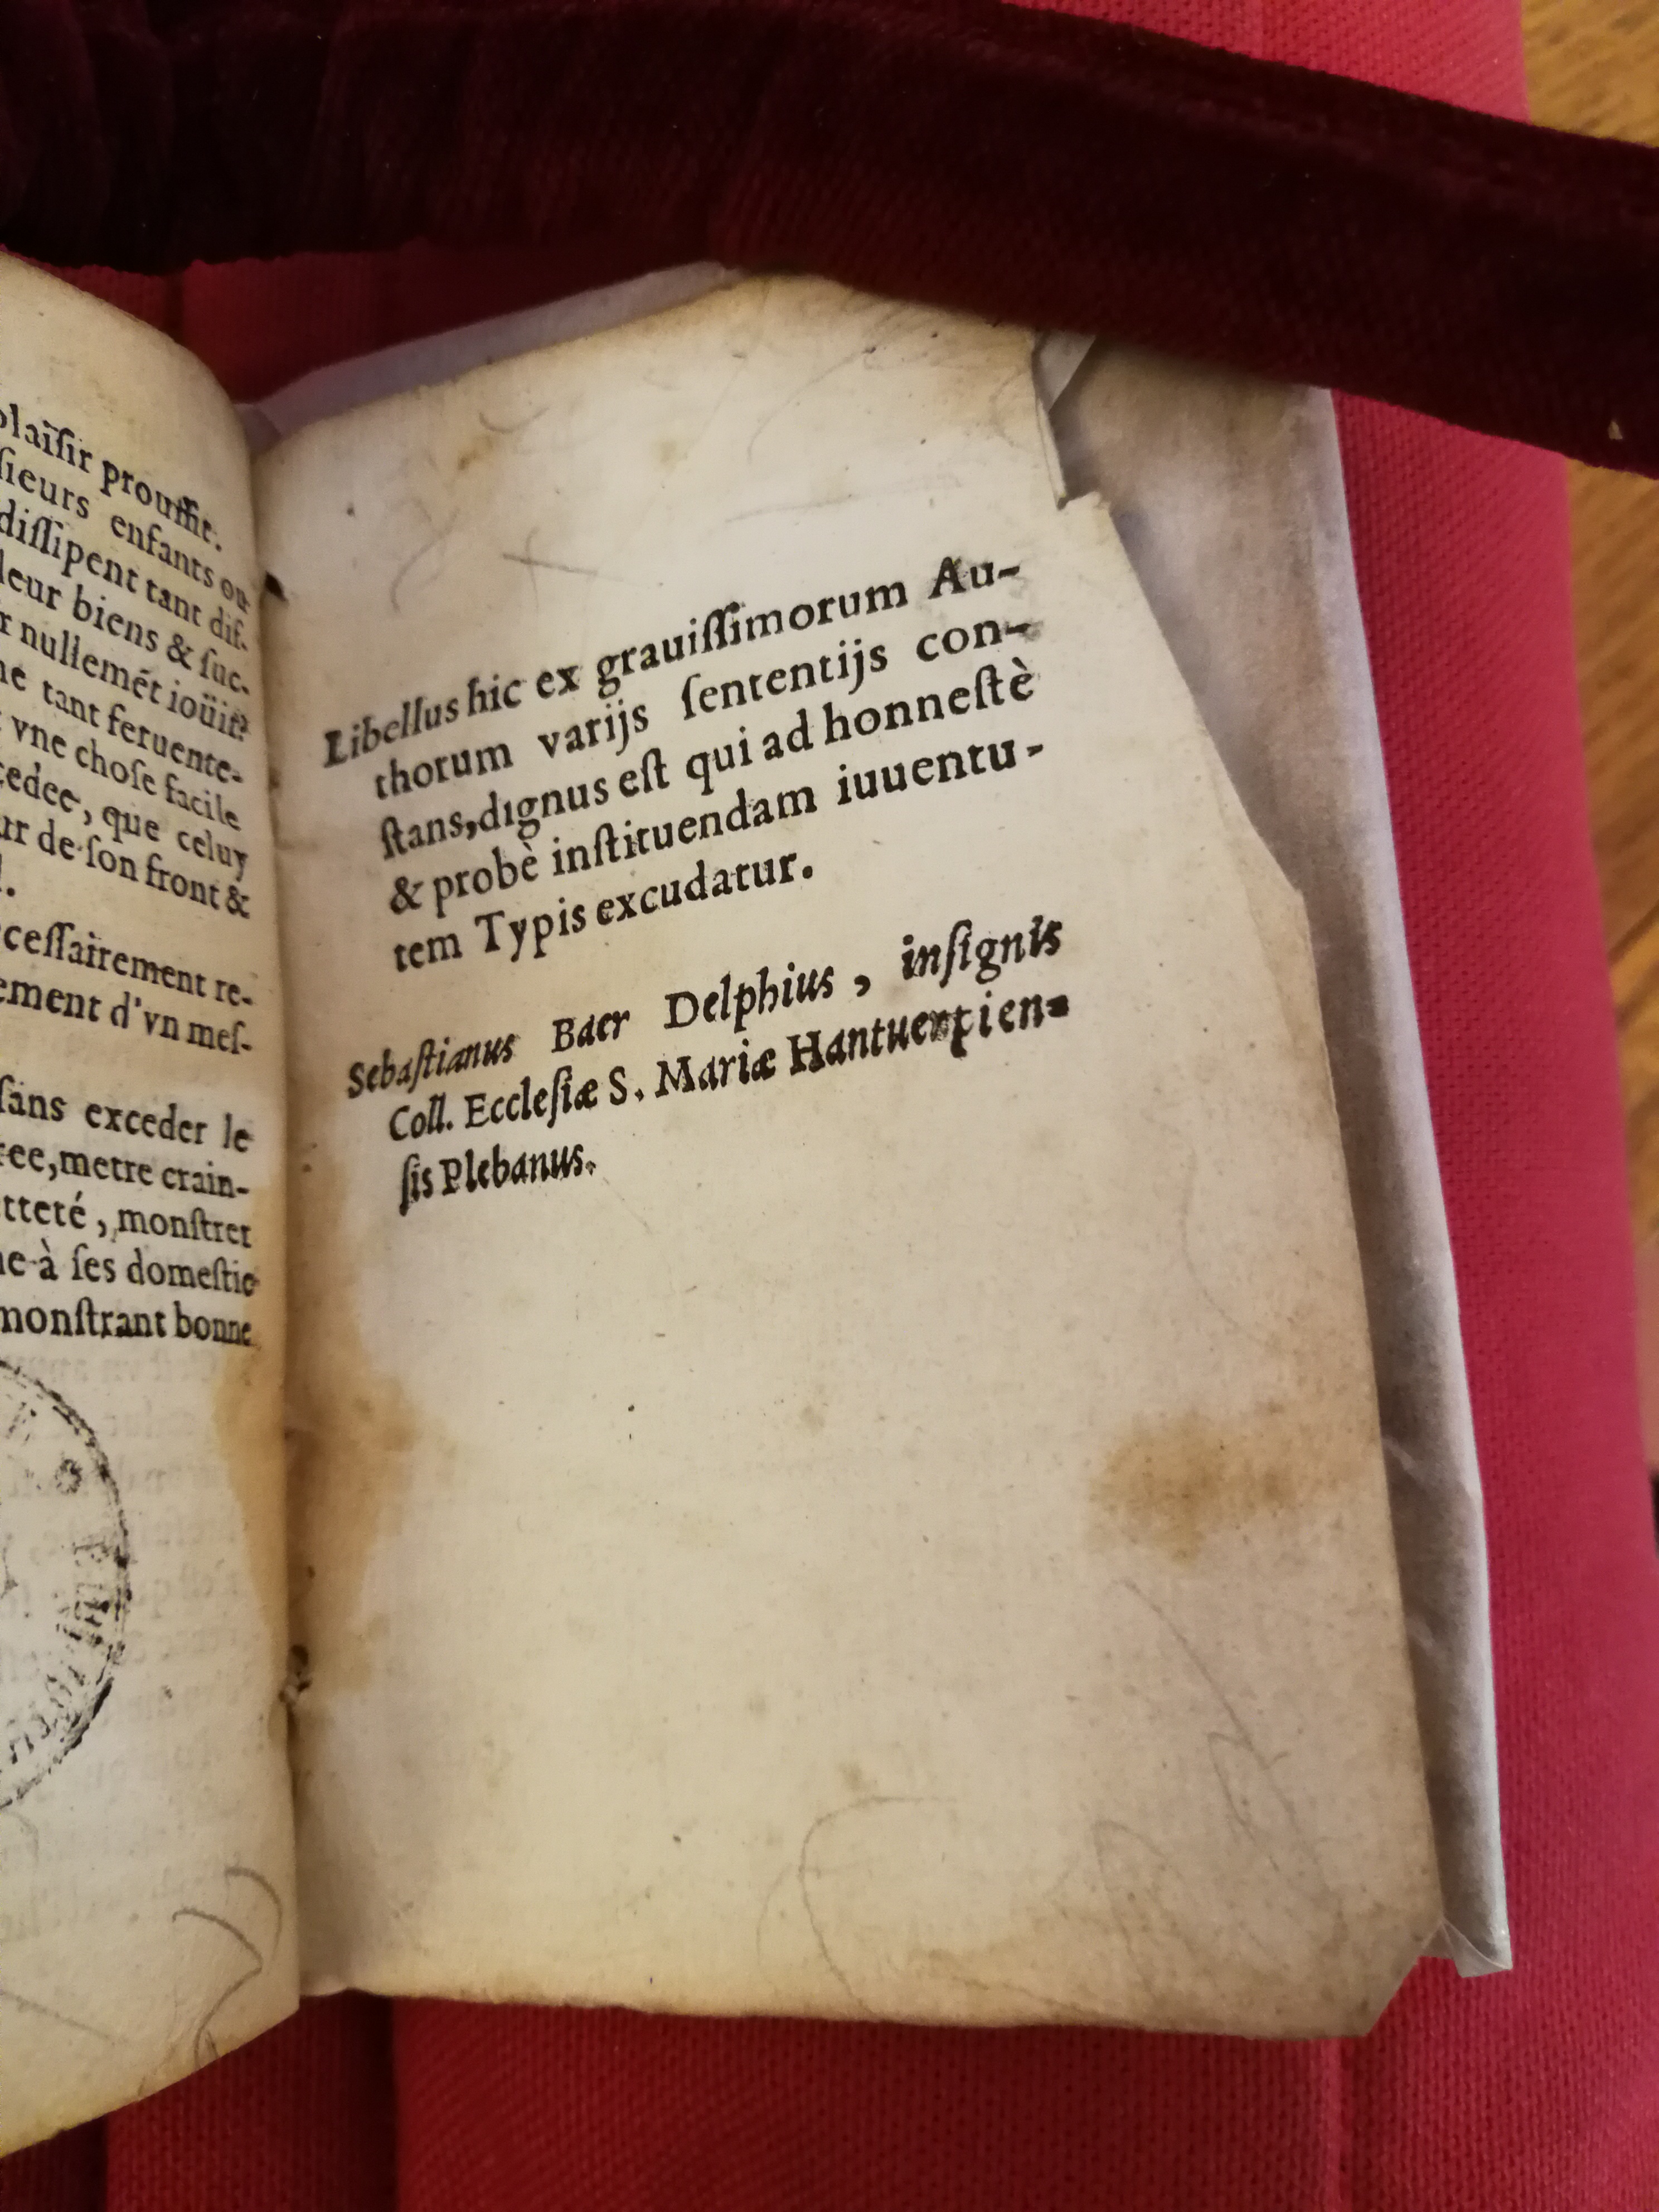 plaiſir prouffit.
ſieurs enfants ou
diſſipent tant diſ-
leur biens & ſuc-
r nullemét ioüit?
ne tant feruente-
vne choſe facile
cedee, que celuy
ur de ſon front &
l.
ceſſairement re-
ement d'vn meſ-
ſans exceder le
ree, metre crain-
tteté, monſtrer
ne à ſes domeſtic
monſtrant bonne
Libellus hic ex grauiſſimorum Au-
thorum varijs ſententijs con-
ſtans, dignus eſt qui ad honneſtè
& probè inſtituendam iuuentu-
tem Typis excudatur.
Sebaſtianus Baer Delphius, inſignis
Coll. Eccleſiæ S. Mariæ Hantuerpien-
ſis Plebanus.